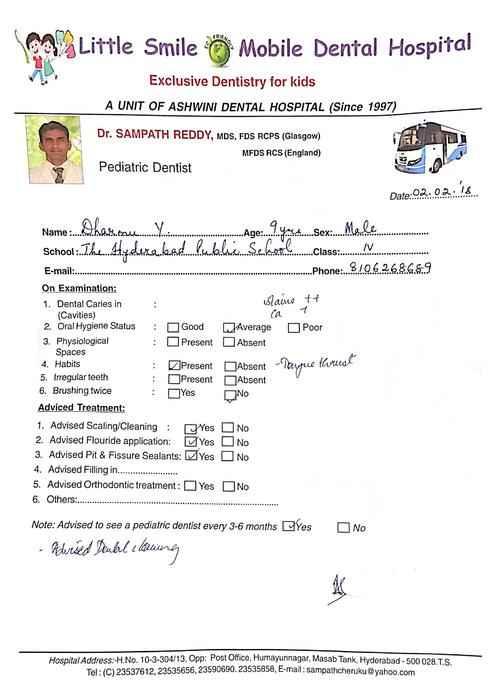 Little Smile ECO FRIENDLY Mobile Dental Hospital
Exclusive Dentistry for kids
A UNIT OF ASHWINI DENTAL HOSPITAL (Since 1997)
Dr. SAMPATH REDDY, MDS, FDS RCPS (Glasgow)
MFDS RCS (England)
Pediatric Dentist
Date: 02.02.'18
Name: Y. Age: 9yrs Sex: Male
School: The Hyderabad Public School Class: IV
E-mail: Phone: 8106268689
On Examination:
1. Dental Caries in (Cavities) : stains ++
Ca +
2. Oral Hygiene Status : Good Average Poor
3. Physiological Spaces : Present Absent
4. Habits : Present Absent - Tongue thrust
5. Irregular teeth : Present Absent
6. Brushing twice : Yes No
Adviced Treatment:
1. Advised Scaling/Cleaning : Yes No
2. Advised Flouride application: Yes No
3. Advised Pit & Fissure Sealants: Yes No
4. Advised Filling in....................
5. Advised Orthodontic treatment : Yes No
6. Others:..................................................
Note: Advised to see a pediatric dentist every 3-6 months Yes No
- Advised Dental cleaning
Hospital Address:-H.No. 10-3-304/13, Opp: Post Office, Humayunnagar, Masab Tank, Hyderabad - 500 028.T.S.
Tel : (C) 23537612, 23535656, 23590690. 23535858, E-mail : sampathcheruku@yahoo.com